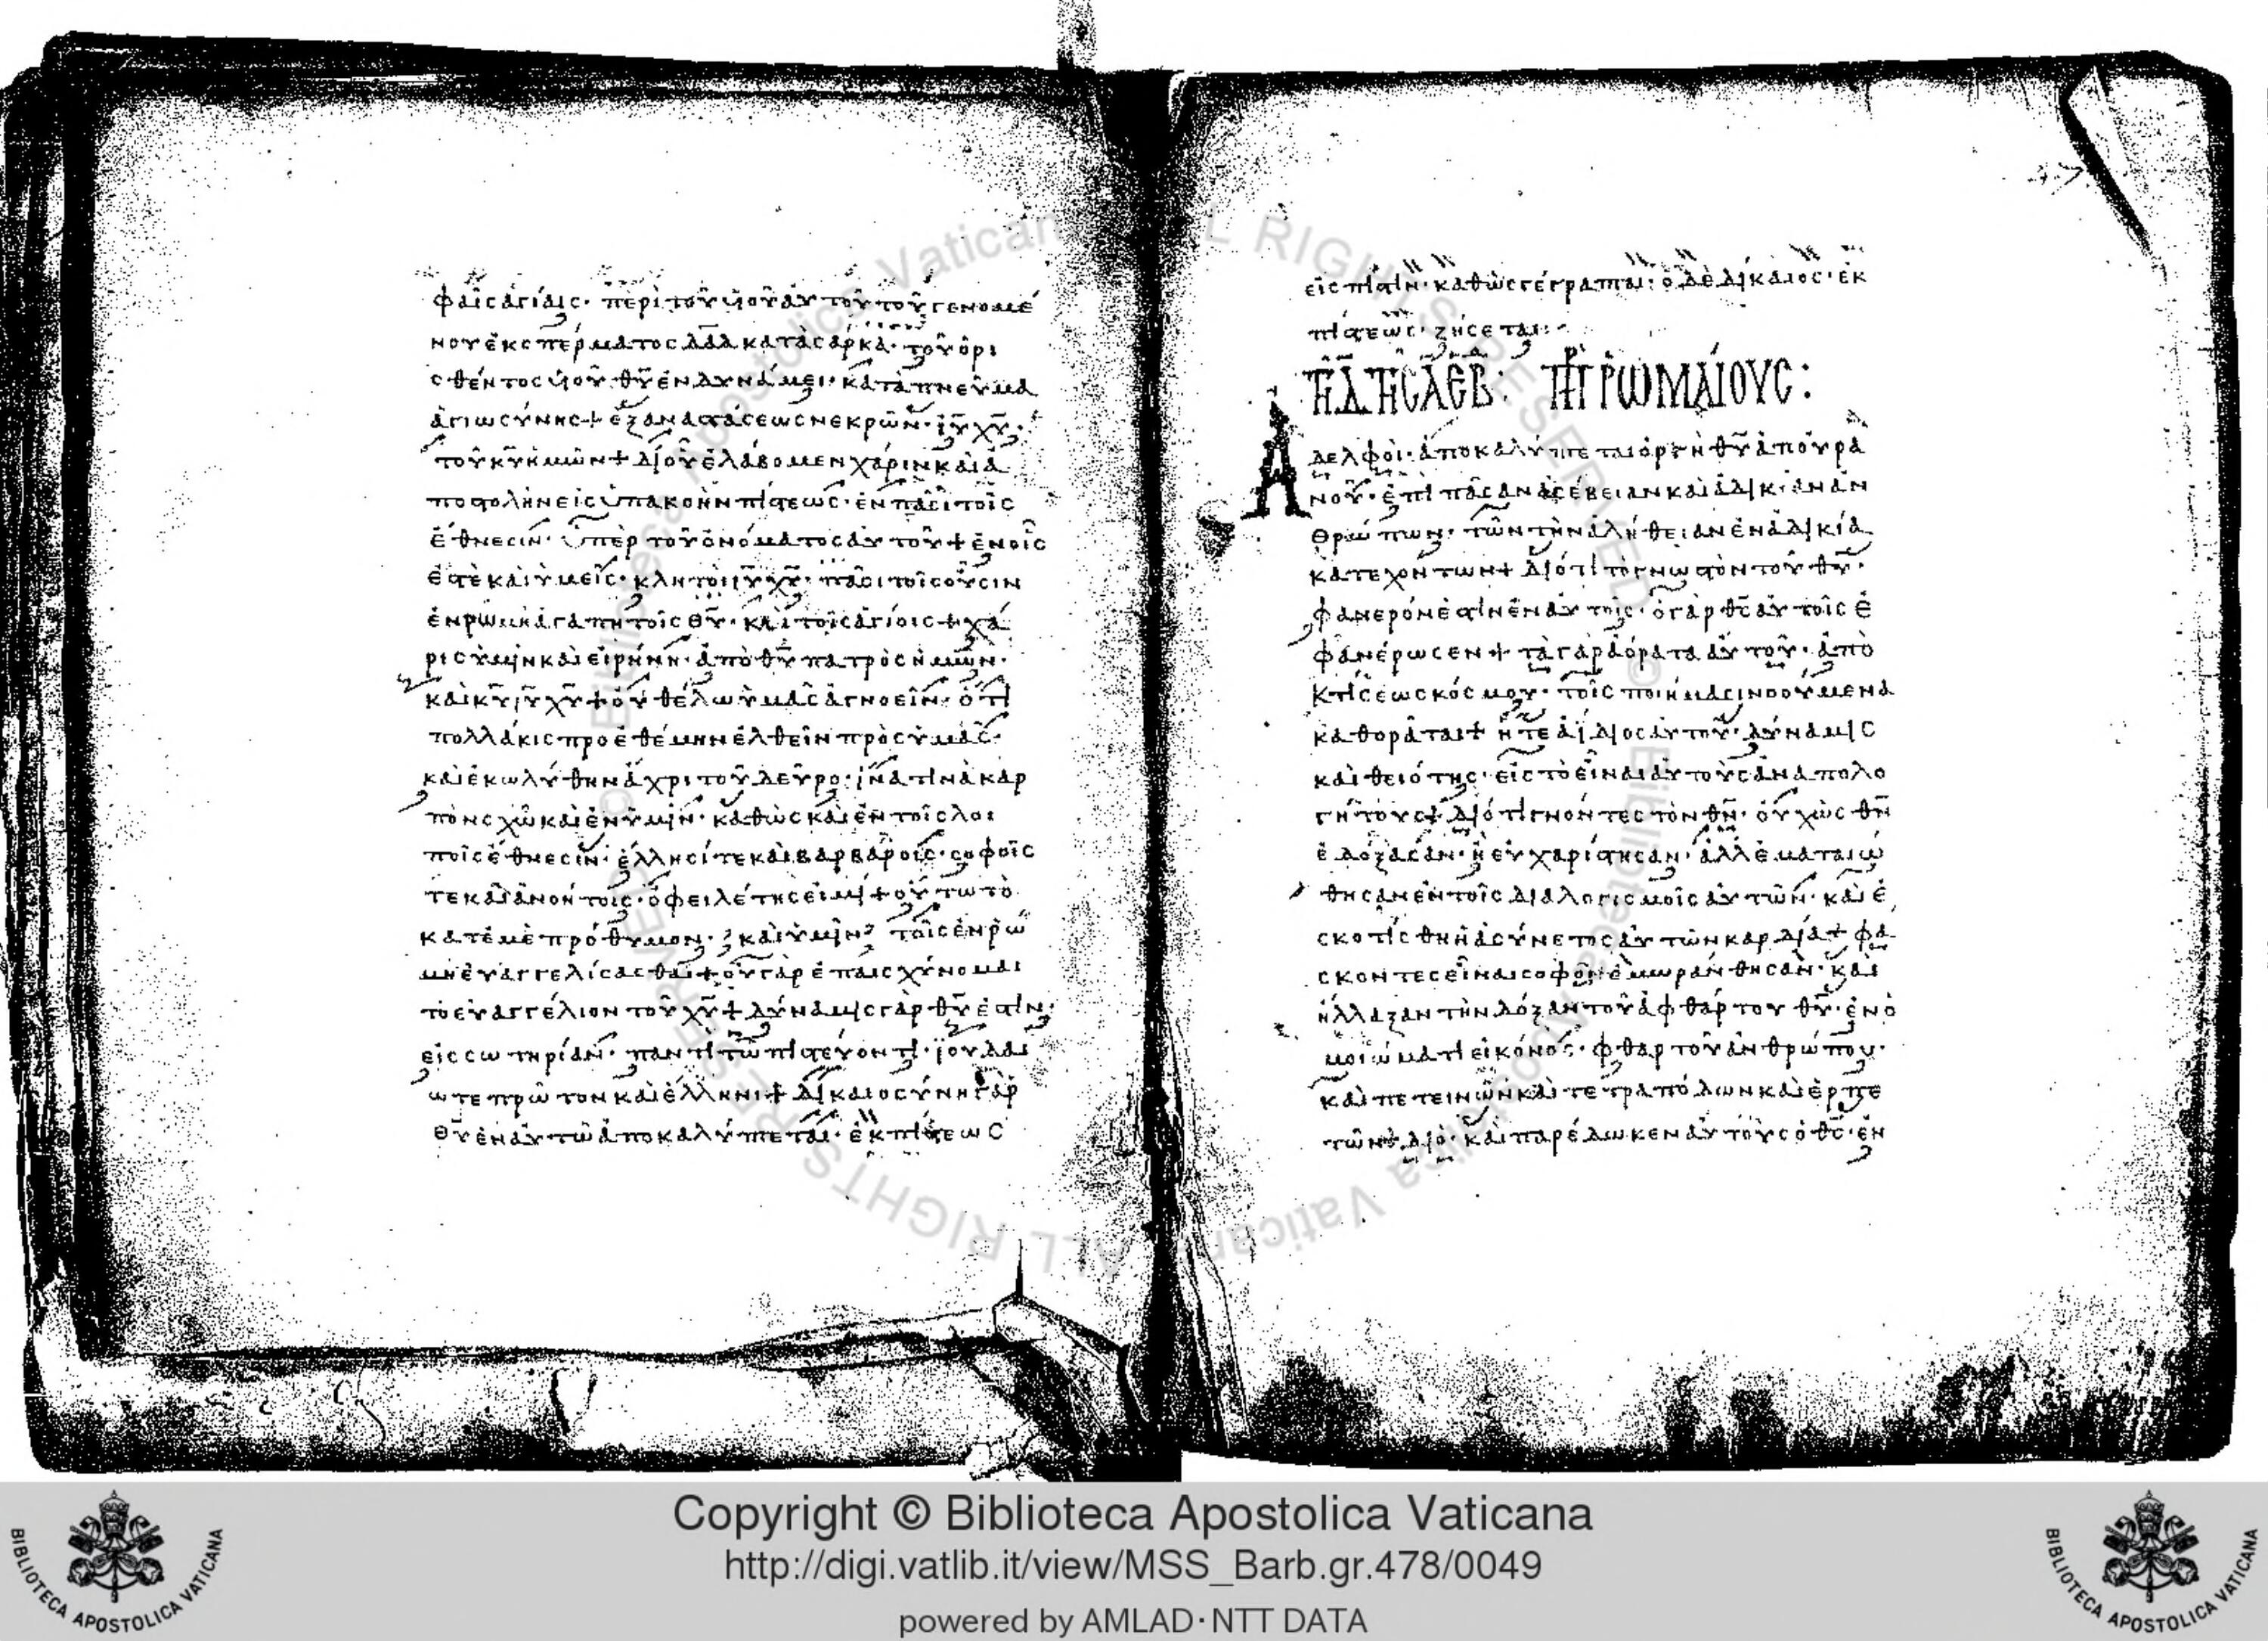 φαῖς ἁγίαις· περὶ τοῦ υἱοῦ αὐτοῦ τοῦ γενομέ
νου ἐκ σπέρματος δαδ κατὰ σάρκα· τοῦ ὁρι
σθέντος υἱοῦ θυ ἐν δυνάμει· κατὰ πνεῦμα
ἁγιωσύνης + ἐξ αναστάσεως νεκρῶν· ιυ χυ·
τοῦ κυ ἡμῶν + δι οὗ ἐλάβομεν χάριν καὶ ἀ
ποστολὴν εἰς ὑπακοὴν πίστεως· ἐν πᾶσι τοῖς
ἔθνεσιν· ὑπὲρ τοῦ ὀνόματος αὐτοῦ + ἐν οἷς
ἐστὲ καὶ ὑμεῖς· κλητοὶ ιυ χυ· πᾶσι τοῖς οὖσιν
ἐν ῥώμη ἀγαπητοῖς θυ· καὶ τοῖς ἁγίοις + χά
ρις ὑμῖν καὶ εἰρήνη· ἀπὸ θυ πατρὸς ἡμῶν·
καὶ κυ ιυ χυ + οὐ θέλω ὑμᾶς ἀγνοεῖν· ὅτι
πολλάκις προεθέμην ἐλθεῖν πρὸς ὑμᾶς·
καὶ ἐκωλύθην ἄχρι τοῦ δεῦρο· ἵνα τινὰ καρ
πὸν σχῶ καὶ ἐν ὑμῖν· καθὼς καὶ ἐν τοῖς λοι
ποῖς ἔθνεσιν· ἕλλησί τε καὶ βαρβάροις· σοφοῖς
τε καὶ ἀνοήτοις· ὀφειλέτης εἰμί + οὕτω τὸ
κατ ἐμὲ πρόθυμον· καὶ ὑμῖν τοῖς ἐν ῥώ
μη εὐαγγελίσασθαι + οὐ γὰρ ἐπαισχύνομαι
τὸ εὐαγγέλιον τοῦ χυ + δύναμις γὰρ θυ ἐστίν·
εἰς σωτηρίαν· παντὶ τῶ πιστεύοντι· ἰουδαί
ω τε πρῶτον καὶ ἕλληνι + δικαιοσύνη γὰρ
θυ ἐν αὐτῶ ἀποκαλύπτεται· ἐκ πίστεως
εἰς πίστιν· καθὼς γέγραπται· ὁ δὲ δίκαιος· ἐκ
πίστεως· ζήσεται:
ῥωμαίους:
Ἀδελφοὶ· ἀποκαλύπτεται ὀργὴ θυ ἀπ οὐρα
νοῦ· ἐπὶ πᾶσαν ἀσέβειαν καὶ ἀδικίαν ἀν
θρώπων· τῶν τὴν ἀλήθειαν ἐν ἀδικία
κατεχόντων + διότι τὸ γνωστὸν τοῦ θυ·
φανερόν ἐστιν ἐν αὐτοῖς· ὁ γὰρ θς αὐτοῖς ἐ
φανέρωσεν + τὰ γὰρ ἀόρατα αὐτοῦ· ἀπὸ
κτίσεως κόσμου· τοῖς ποιήμασι νοούμενα
καθορᾶται + ἥ τε ἀΐδιος αὐτοῦ· δύναμις
καὶ θειότης· εἰς τὸ εἶναι αὐτοὺς ἀναπολο
γήτους + διότι γνόντες τὸν θν· οὐχ ὡς θν
ἐδόξασαν· ἢ εὐχαρίστησαν· ἀλλ ἐματαιώ
θησαν ἐν τοῖς διαλογισμοῖς αὐτῶν· καὶ ἐ
σκοτίσθη ἡ ἀσύνετος αὐτῶν καρδία + φά
σκοντες εἶναι σοφοὶ ἐμωράνθησαν· καὶ
ἤλλαξαν τὴν δόξαν τοῦ ἀφθάρτου θυ· ἐν ὁ
μοιώματι εἰκόνος· φθαρτοῦ ἀνθρώπου·
καὶ πετεινῶν καὶ τετραπόδων καὶ ἑρπε
τῶν + διὸ· καὶ παρέδωκεν αὐτοὺς ὁ θς· ἐν
Copyright © Biblioteca Apostolica Vaticana
http://digi.vatlib.it/view/MSS_Barb.gr.478/0049
powered by AMLAD·NTT DATA
BIBLIOTECA APOSTOLICA VATICANA
BIBLIOTECA APOSTOLICA VATICANA